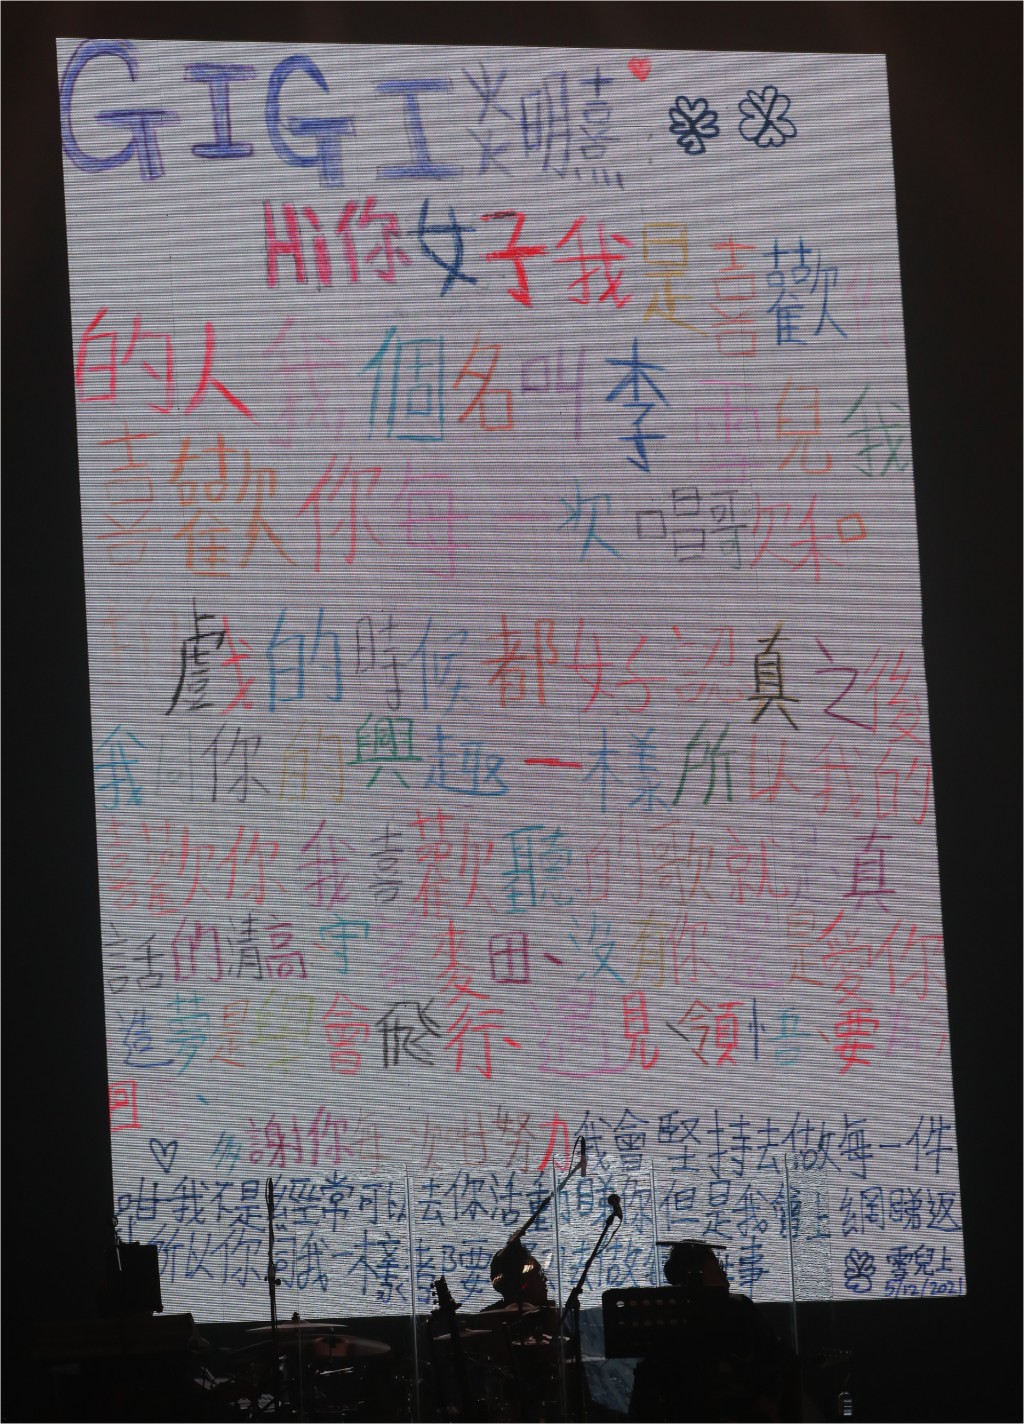 GIGI 炎明熹
Hi 你好我是喜歡你
的人我個名叫李雪兒我
喜歡你每一次唱歌和
戲的時候都好認真之後
我同你的興趣一樣所以我的
喜歡你我喜歡聽的歌就是真
話的清高、守望麥田、沒有你還是愛你
造夢是學會飛行、遇見、領悟、要
回、
多謝你每一次咁努力我會堅持去做每一件
咁我不是經常可以去你活動睇你但是我會上網睇返
所以你同我一樣都要 去做 事
雪兒上
5/12/2021